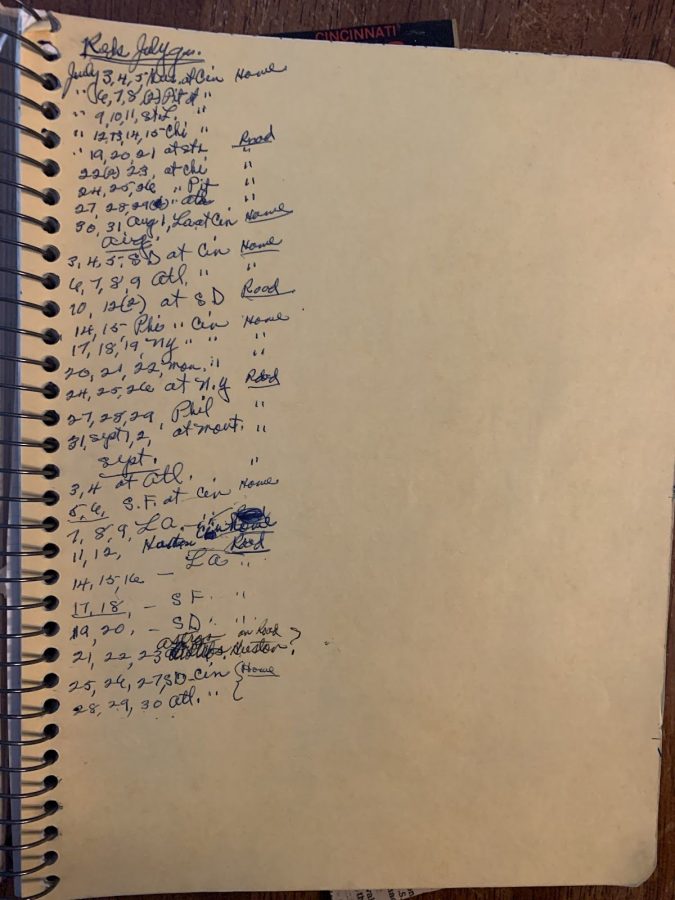 CINCINNATI
Reds July
July 3, 4, 5 at Cin Home
" 6, 7, 8, (2) Pit at "
" 9, 10, 11, St. L. "
" 12, 13, 14, 15 Chi "
" 19, 20, 21 at Stl Road
22(2) 23, at Chi "
24, 25, 26 " Pit "
27, 28, 29 " atl "
30, 31 Aug 1, La at Cin Home
Aug
3, 4, 5 - S D at Cin Home
6, 7, 8, 9 Atl. " "
10, 12(2) at S D Road
14, 15 Phi " Cin Home
17, 18, 19, Ny " " "
20, 21, 22, mon. " "
24, 25, 26 at N.Y Road
27, 28, 29, Phil "
31, Sept 1, 2, at mont. "
Sept.
3, 4 at Atl. "
5, 6, S.F. at Cin Home
7, 8, 9, L A. -
11, 12, Road
14, 15, 16 - L a "
17, 18, - S F. "
19, 20, - S D. "
astros on Road
21, 22, 23 Huston?
25, 26, 27, SD - Cin { Home
28, 29, 30 Atl. " {